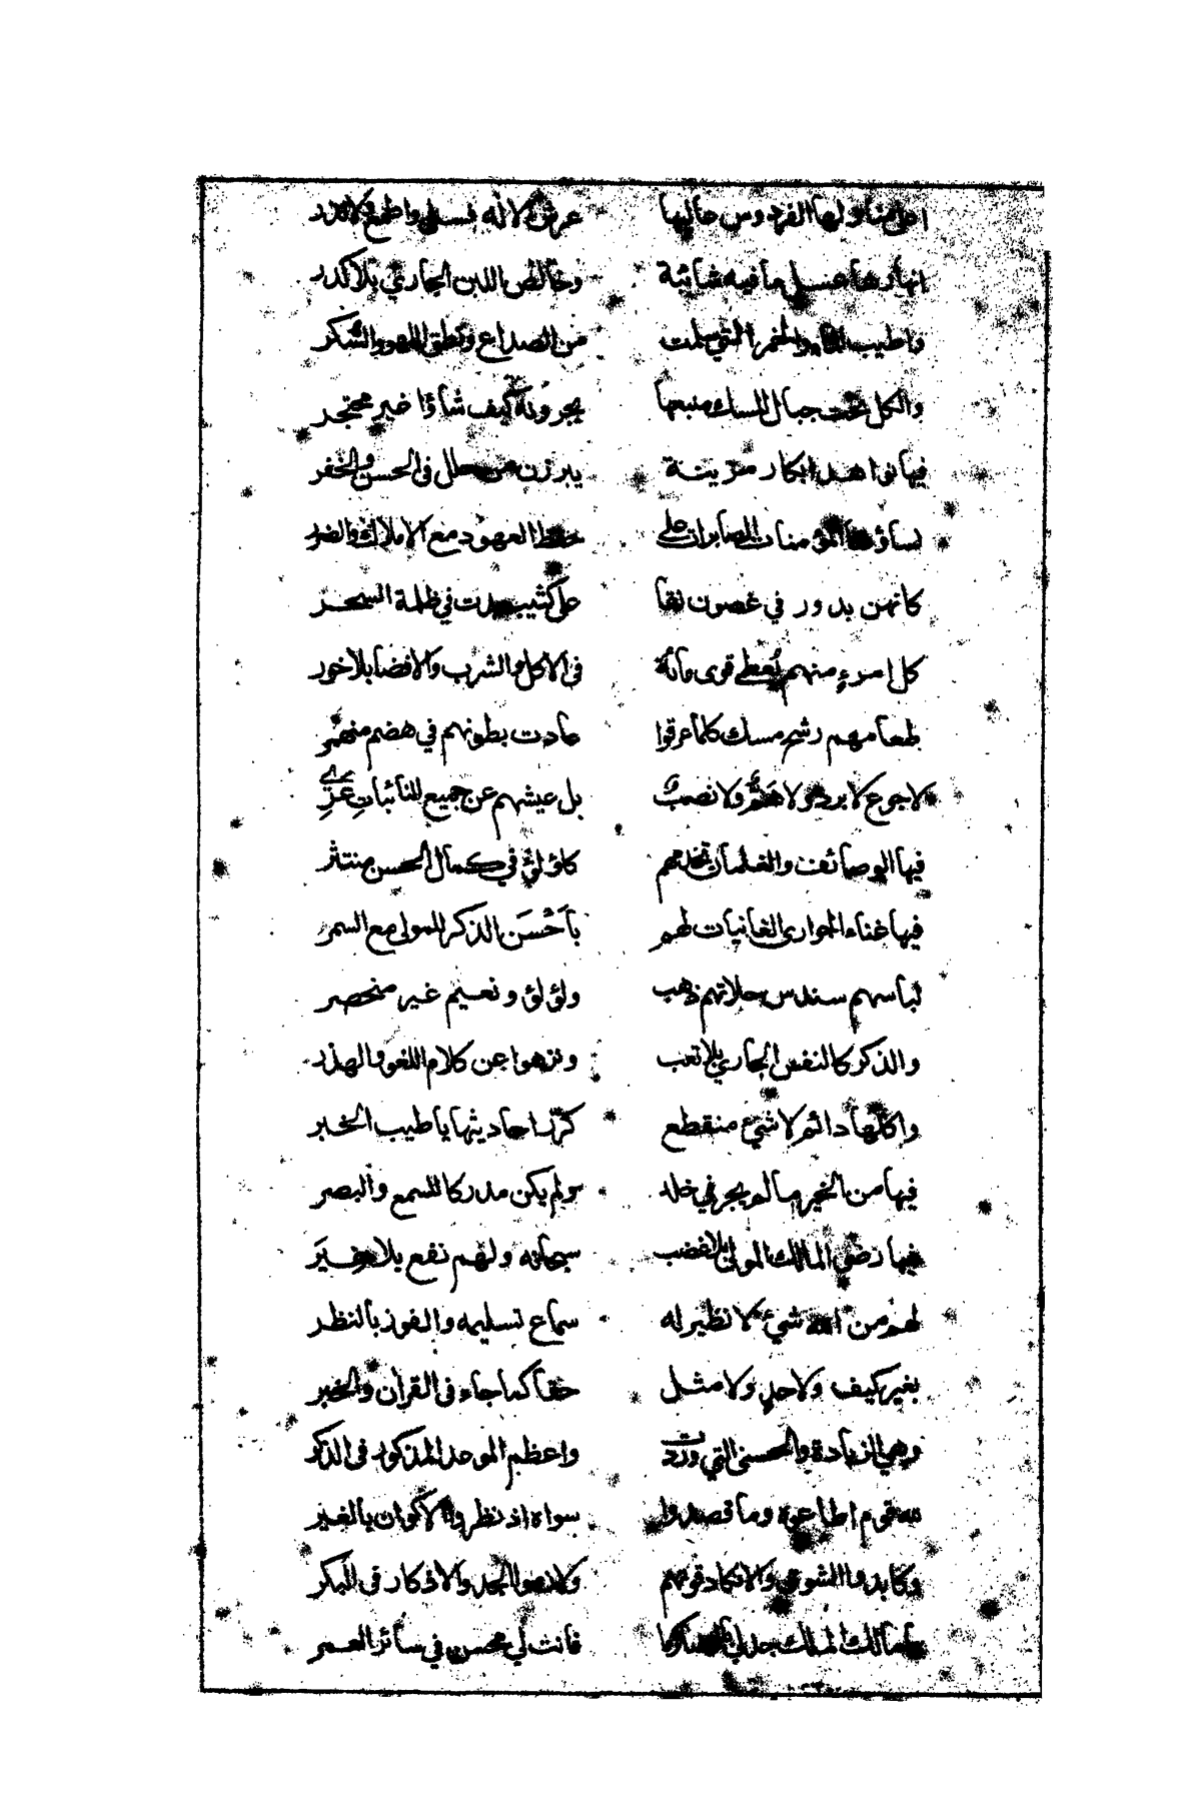 اعلى منازلها الفردوس عاليها عرش الاله فسل واطمع ولا تذر
انهارها عسل ما فيه شائبة وخالص اللبن الجاري بلا كدر
واطيب الماء والخمر التي سلمت من الصداع ونطق اللهو والسكر
والكل تحت جبال المسك منبعها يجرونه كيف شاؤا غير محتجر
فيها نواهد ابكار مزينة يبرزن من حلل في الحسن والخفر
نساؤها المؤمنات الصابرات على حفظ العهود مع الاملاق والضرر
كانهن بدور في غصون نقا على كثيب بدت في ظلمة السحر
كل امرء منهم يعطى قوى مائة في الاكل والشرب والافضا بلا خور
طعامهم رشح مسك كلما عرقوا عادت بطونهم في هضم منضمر
لا جوع لا برد لا هم ولا نصب بل عيشهم عن جميع النائبات عري
فيها الوصائف والغلمان تخدمهم كلؤلؤ في كمال الحسن منتثر
فيها غناء الجواري الغانيات لهم بأحسن الذكر للمولى مع السمر
لباسهم سندس حلاتهم ذهب ولؤلؤ ونعيم غير منحصر
والذكر كالنفس الجاري بلا تعب ونزهوا عن كلام اللغو والهذر
واكلها دائم لا شيء منقطع كرر احاديثها يا طيب الخبر
فيها من الخير ما لم يجر في خلد ولم يكن مدركا للسمع والبصر
فيها رضى المالك المولى بلا غضب سبحانه ولهم نفع بلا غير
لهم من الله شيء لا نظير له سماع تسليمه والفوز بالنظر
بغير كيف ولا حد ولا مثل حقا كما جاء في القرآن والخبر
وهي الزيادة والحسنى التي وردت واعظم الموعد المذكور في الذكر
لله قوم اطاعوه وما قصدوا سواه اذ نظروا الاكوان بالغير
وكابدوا الشوق والانكاد قوتهم ولازموا الجد والاذكار في البكر
يا مالك الملك جد لي بالرضا كرما فانت لي محسن في سائر العمر